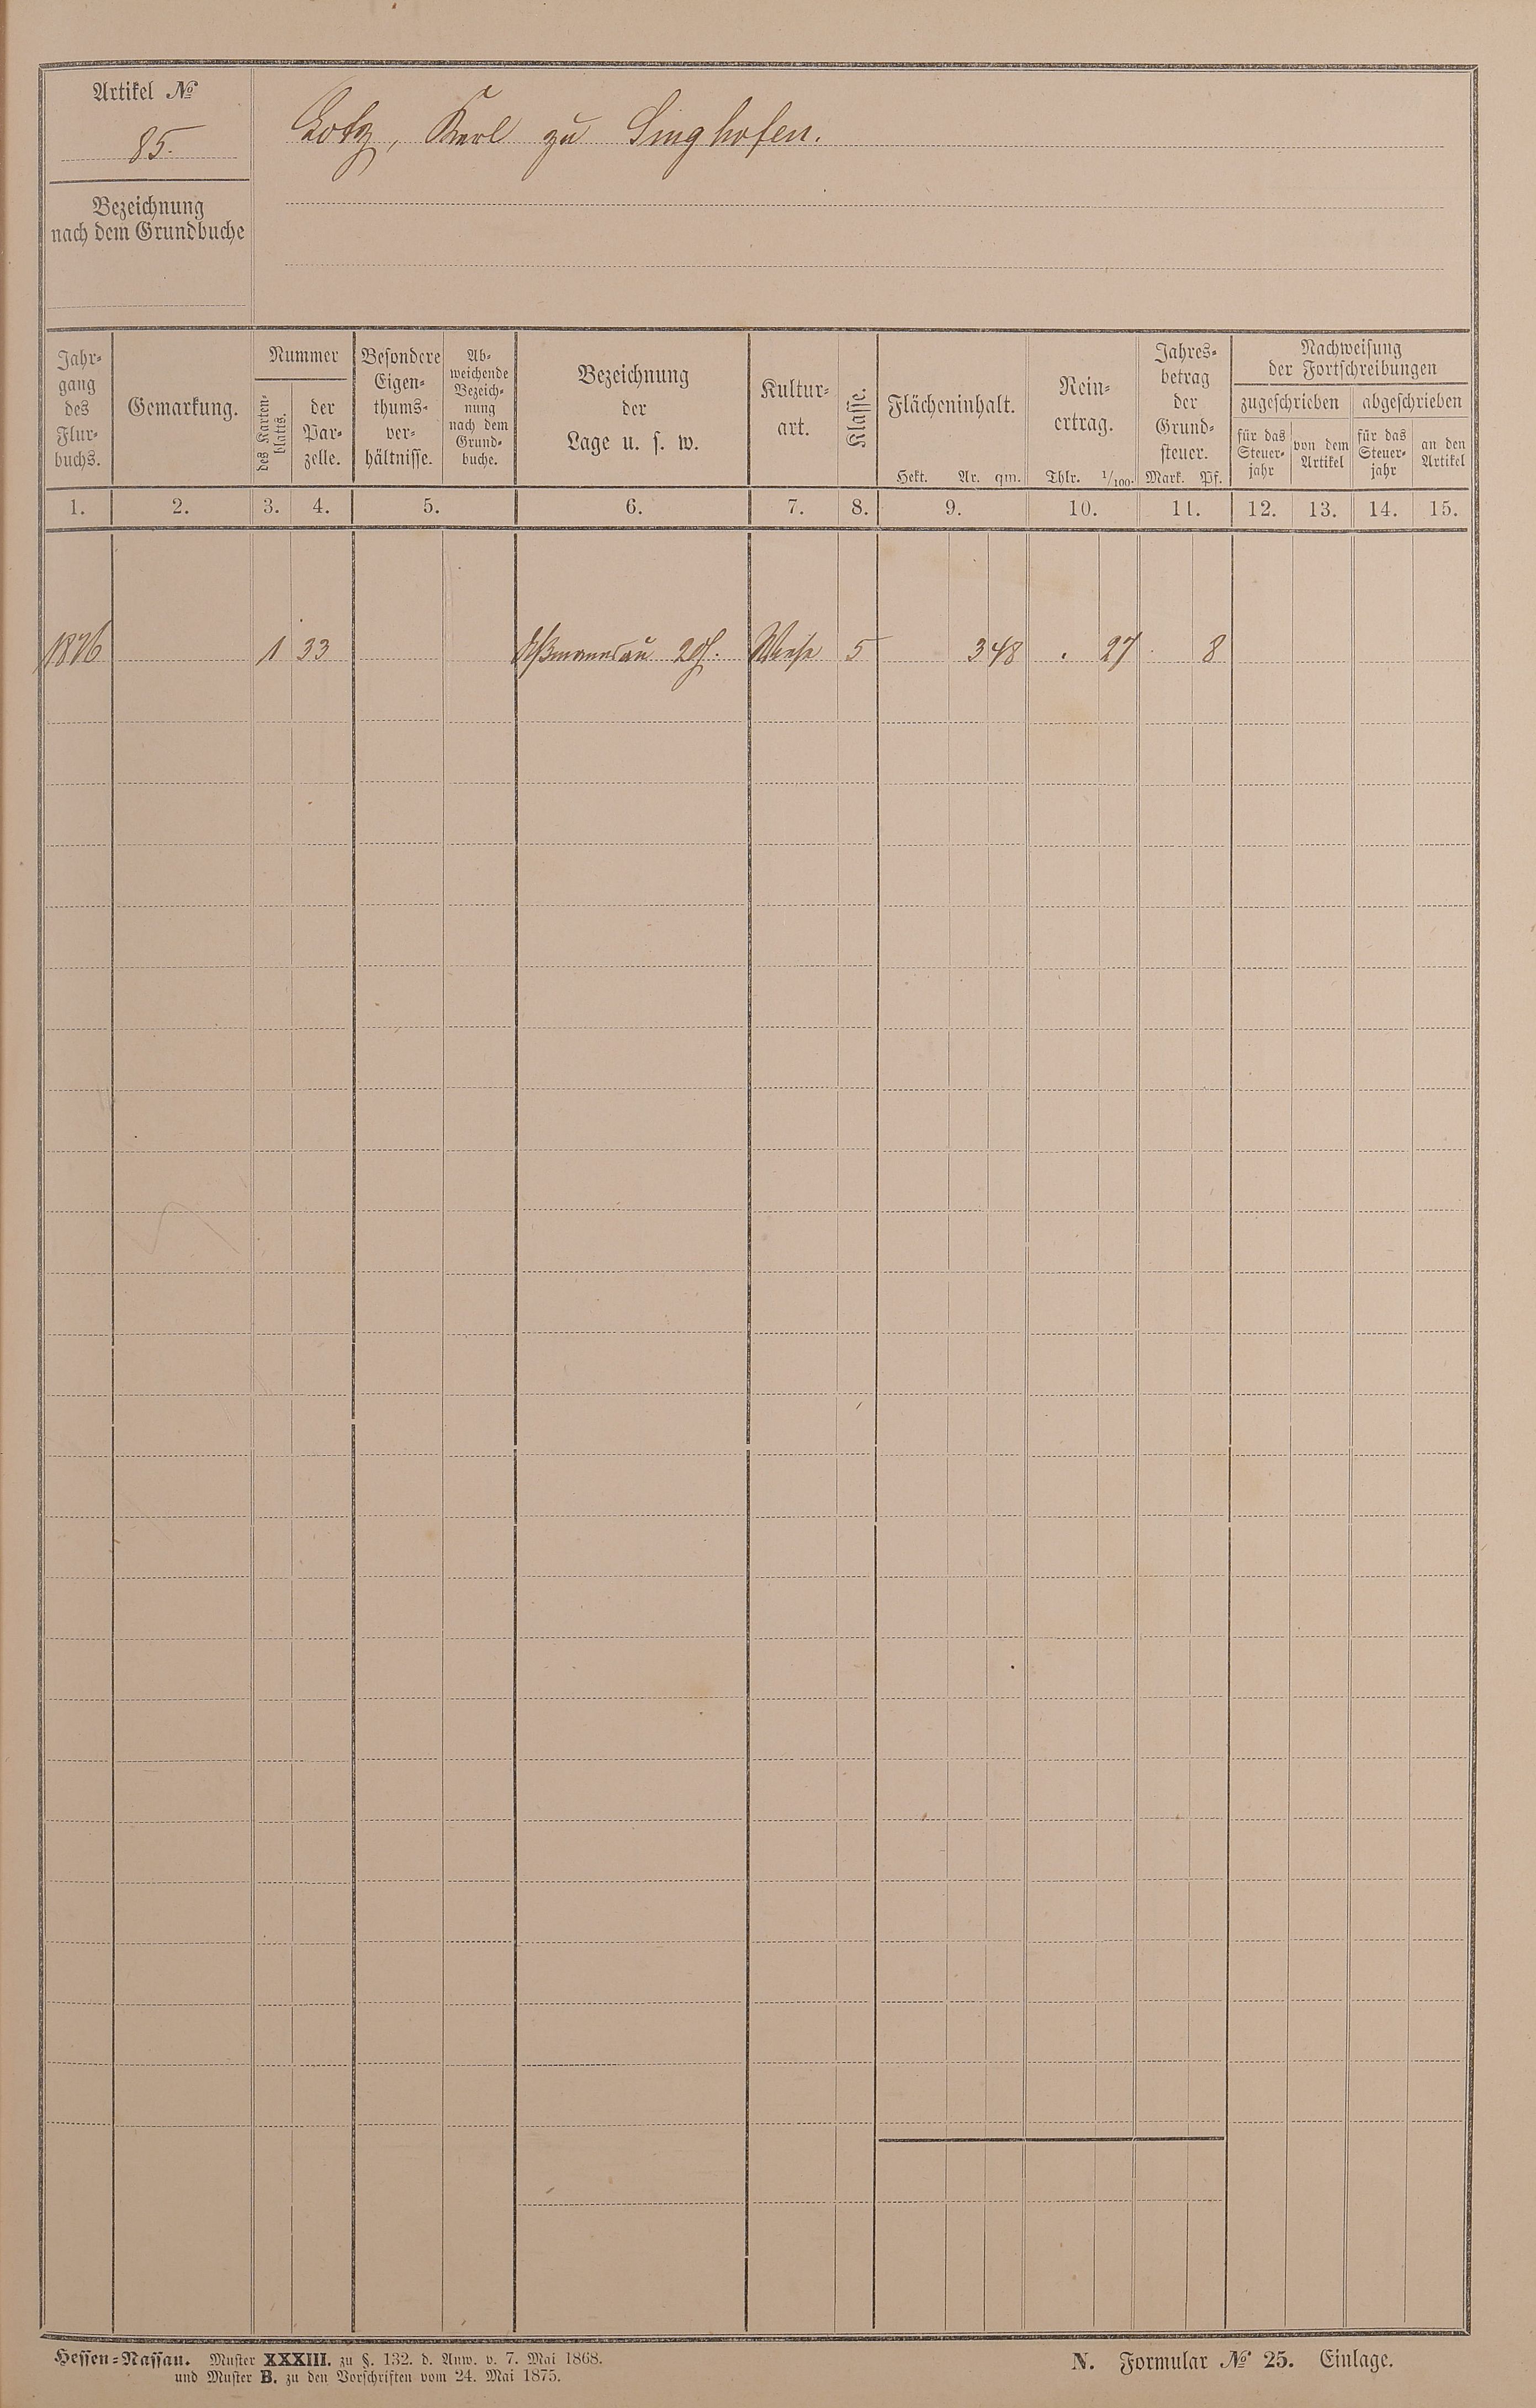 Artikel №
85.
Lotz, Karl zu Singhofen.
Bezeichnung
nach dem Grundbuche
Jahr-
gang
des
Flur-
buchs.
Gemarkung.
Nummer
des Karten-
blatts.
der
Par-
zelle.
Besondere
Eigen-
thums-
ver-
hältnisse.
Ab-
weichende
Bezeich-
nung
nach dem
Grund-
buche.
Bezeichnung
der
Lage u. s. w.
Kultur-
art.
Klasse.
Flächeninhalt.
Hekt. Ar. qm.
Rein-
ertrag.
Thlr. 1/100.
Jahres-
betrag
der
Grund-
steuer.
Mark. Pf.
Nachweisung
der Fortschreibungen
zugeschrieben abgeschrieben
für das
Steuer-
jahr
von dem
Artikel
für das
Steuer-
jahr
an den
Artikel
1. 2. 3. 4. 5. 6. 7. 8. 9. 10. 11. 12. 13. 14. 15.
1876 1 33 Wiese 5 3 48 . 27 . 8
Hessen-Nassau. Muster XXXIII. zu §. 132. d. Anw. v. 7. Mai 1868.
und Muster B. zu den Vorschriften vom 24. Mai 1875.
N. Formular № 25. Einlage.